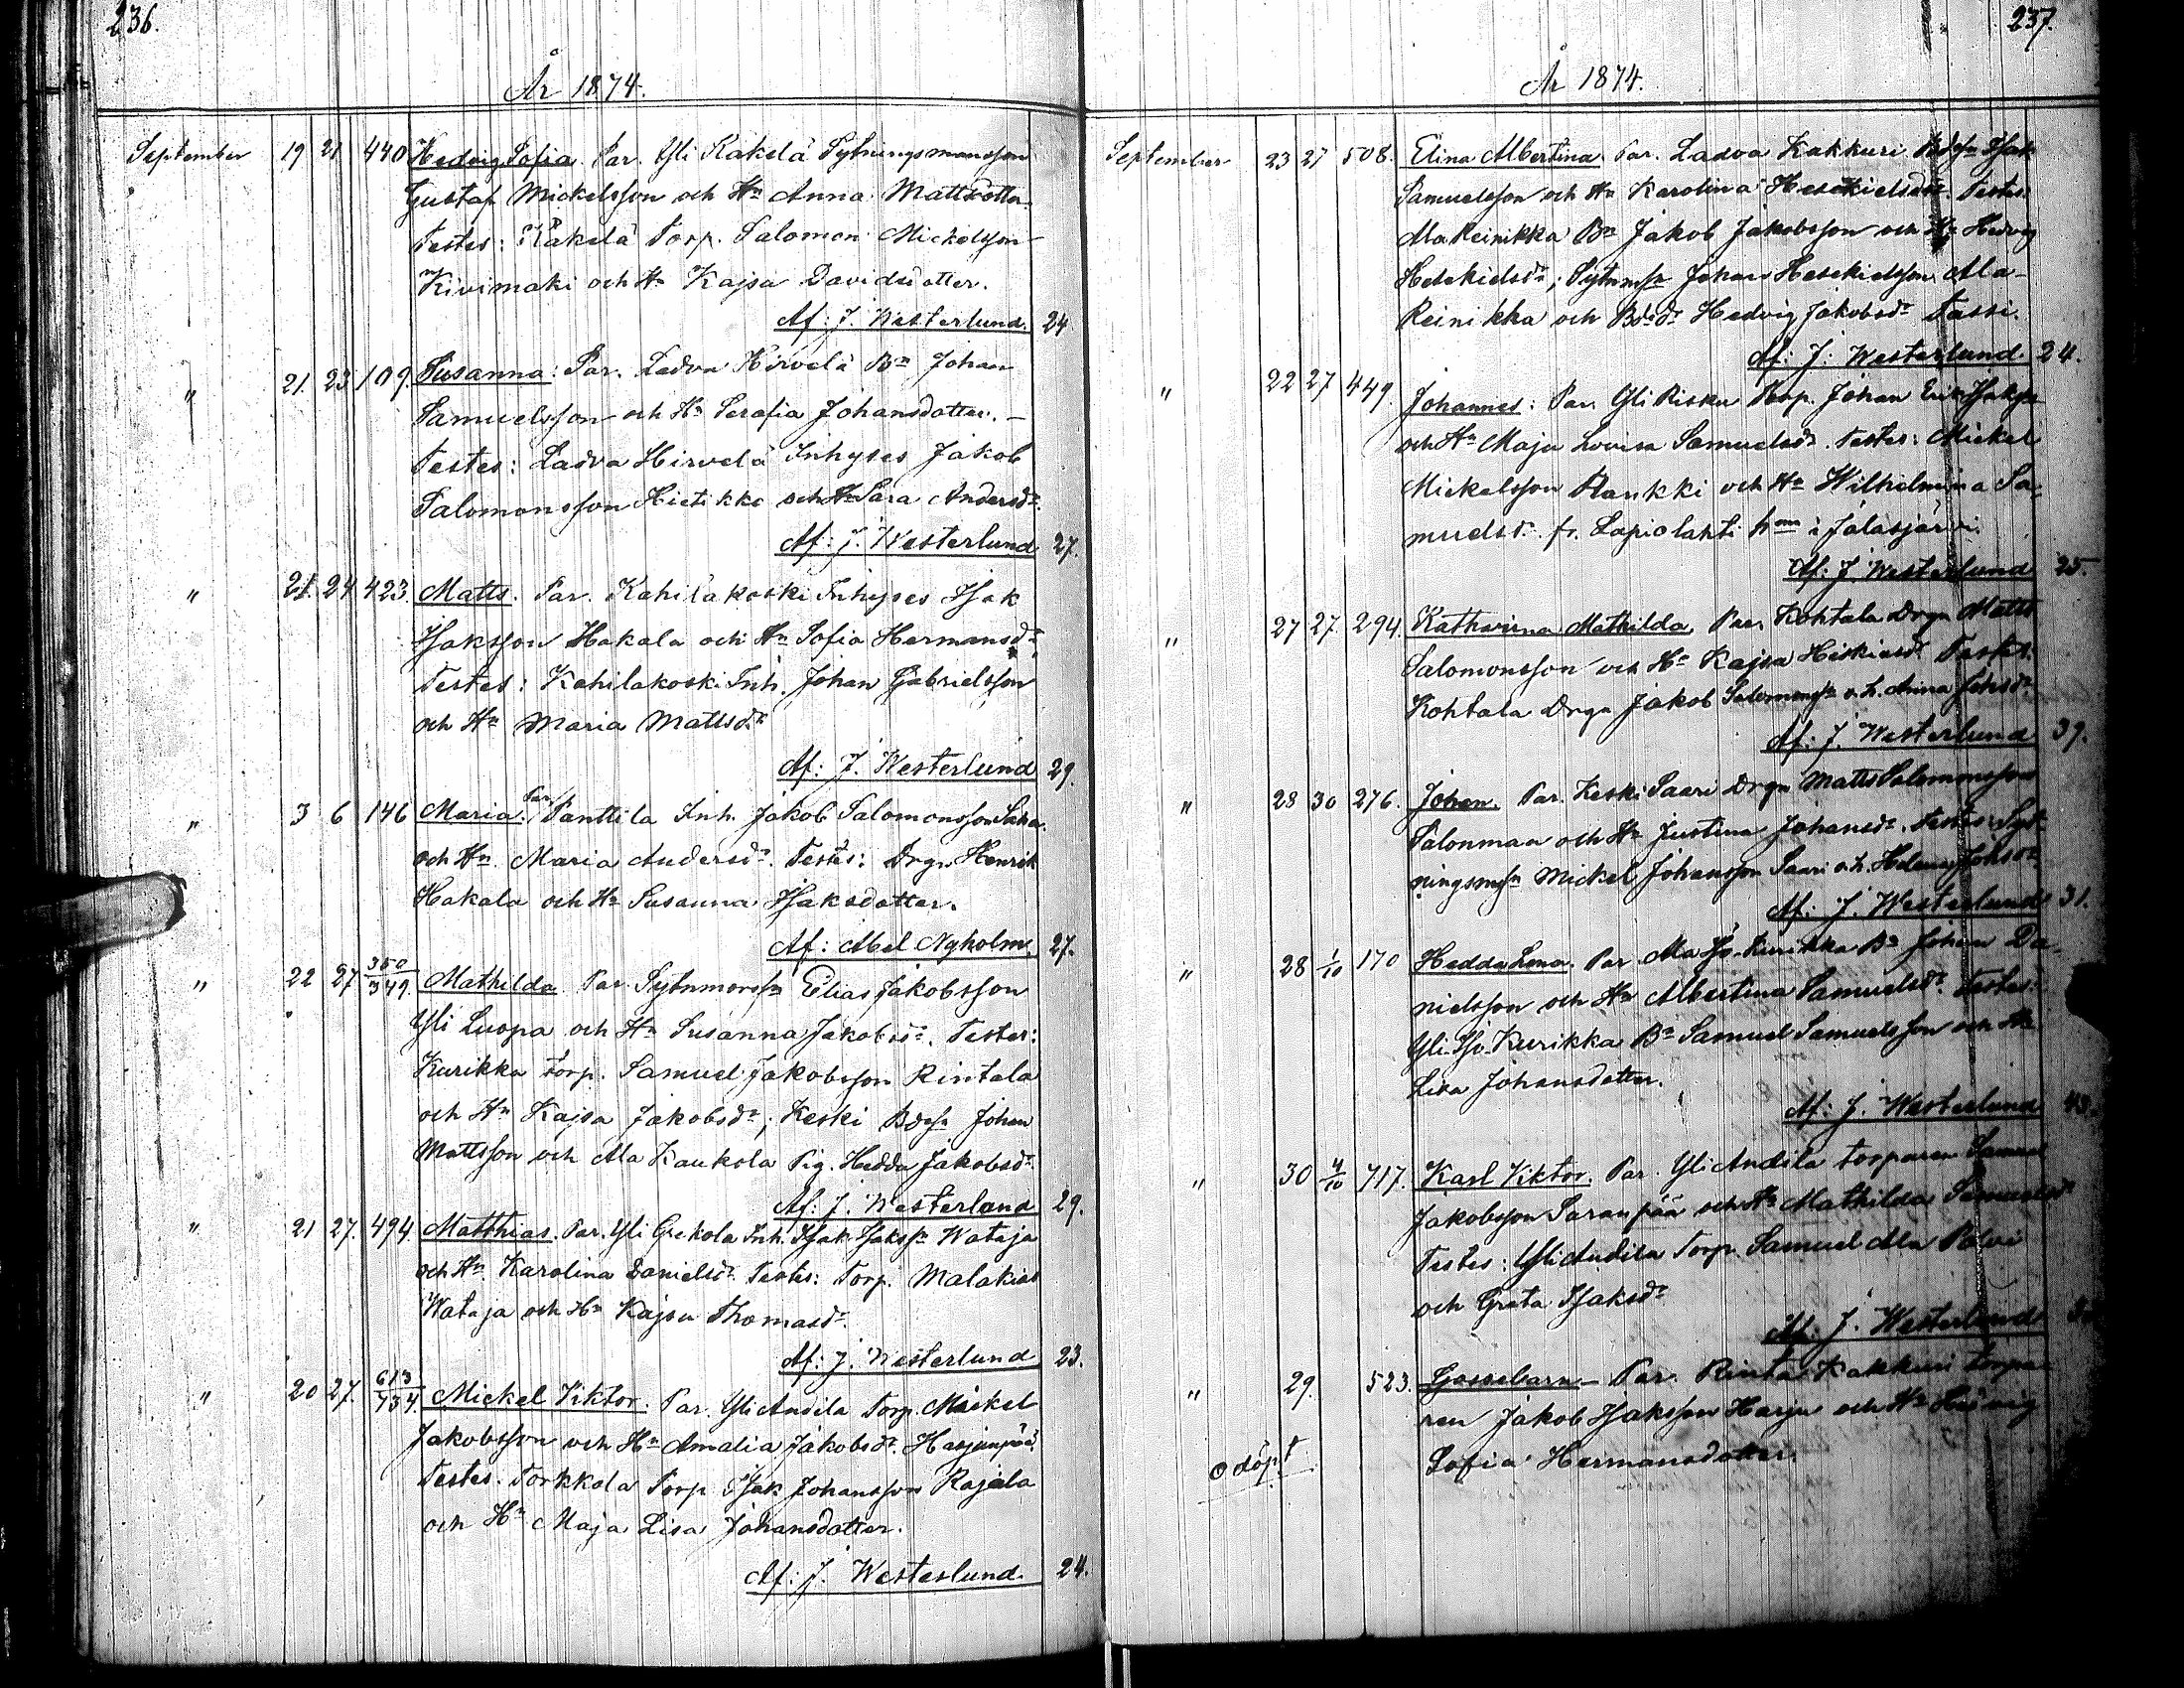 236.
År 1874.
September 19 21 440 Hedvig Sofia. Par. Yli Käkelä Sytningsmansson
Gustaf Mickelsson och Hn Anna Mattsdotter.
Testes: Käkelä Torp. Salomon Mickelsson
Kivimäki och Hn Kajsa Davidsdotter.
Af: J. Westerlund. 24
" 21. 23 109. Susanna: Par. Ladva Hirvelä Bn Johan
Samuelsson och Hn Serafia Johansdotter. –
Testes: Ladva Hirvelä Inhyses Jakob
Salomonsson Hietikko och Hn Sara Andersdr.
Af: J. Westerlund 27.
" 21. 24 423. Matts. Par. Kahilakoski Inhyses Isak
Isaksson Hakala och Hn Sofia Hermansdr.
Testes: Kahilakoski Inh. Johan Gabrielsson
och Hn Maria Mattsdr
Af: J. Westerlund 29.
" 3 6 146 Maria. Par. Panttila Inh. Jakob Salomonsson
och Hn. Maria Andersdr. Testes: Drgn Henrik
Hakala och Hn Susanna Isaksdotter.
Af: Abel Nyholm. 27.
" 22 27 350/349. Mathilda Par. Sytnmanssn Elias Jakobsson
Yli Luopa och Hn Susanna Jakobsdr. Testes:
Kurikka Torp. Samuel Jakobsson Rintala
och Hn Kajsa Jakobsdr; Keski Bdesn Johan
Mattsson och Ala Kaukola Pig. Hedda Jakobsdr.
Af: J. Westerlund 29.
" 21 27. 494 Matthias. Par. Yli Grekola Inh. Isak Isakssn Wataja
och Hn. Karolina Danielsdr. Testes: Torp. Malakias
Wataja och Hn Kajsa Thomasdr.
Af: J. Westerlund 23.
" 20 27. 613/734. Mickel Viktor. Par. Yli Andila Torp. Mickel
Jakobsson och Hn Amalia Jakobsdr. Harjunpää.
Testes. Torkkola Torp Isak Johansson Rajala
och Hn Maja Lisa Johansdotter.
Af: J. Westerlund. 24.
237.
År 1874.
September 23 27 508. Elina Albertina. Par. Ladva Kakkuri Bdesn Isak
Samuelsson och Hn Karolina Hesekielsdr. Testes:
Ala Reinikka Bn Jakob Jakobsson och Hn Hedvig
Hesekielsdr; Sytnmsn Johan Hesekielsson Ala-
Reinikka och Bdsdr Hedvig Jakobsdr Tassi.
Af: J. Westerlund. 24.
" 22 27 449. Johannes: Par. Yli Risku Torp. Johan Erik Isakssn
och Hn Maja Lovisa Samuelsdr. Testes: Mickel
Mickelsson Raukki och Hn Wilhelmina Sa-
muelsdr. fr. Lapiolahti hmn i Jalasjärvi.
Af: J. Westerlund 25.
" 27 27. 294. Katharina Mathilda. Par. Kohtala Drgn Matts
Salomonsson och Hn Kajsa Hiskiasdr Testes:
Kohtala Drgn Jakob Salomonssn o. h. Anna Johsdr.
Af: J. Westerlund 37.
" 28 30 276. Johan. Par. Keski Saari Drgn Matts Salomonsson
Salonman och Hn Justina Johansdr. Testes: Syt-
ningsmsn Mickel Johansson Saari o. h. Helena Johsdr
Af: J. Westerlund 31.
" 28 1/10 170 Hedda Lena. Par. Ala Iso-Kurikka Bn Johan Da-
nielsson och Hn Albertina Samuelsdr. Testes:
Yli-Iso-Kurikka Bn Samuel Samuelsson och Hn
Lisa Johansdotter.
Af: J. Westerlund
" 30 4/10 717. Karl Viktor. Par. Yli Andila torparen Samuel
Jakobsson Saranpää och Hn Mathilda Samuelsdr
Testes: Yli Andila Torp. Samuel Ala Polvi
och Greta Isaksdr
Af. J. Westerlund
" 29. 523. Gossebarn – Par. Rinta Kakkuri torpa-
ren Jakob Isaksson Harju och Hn Hedvig
odöpt Sofia Hermansdotter.